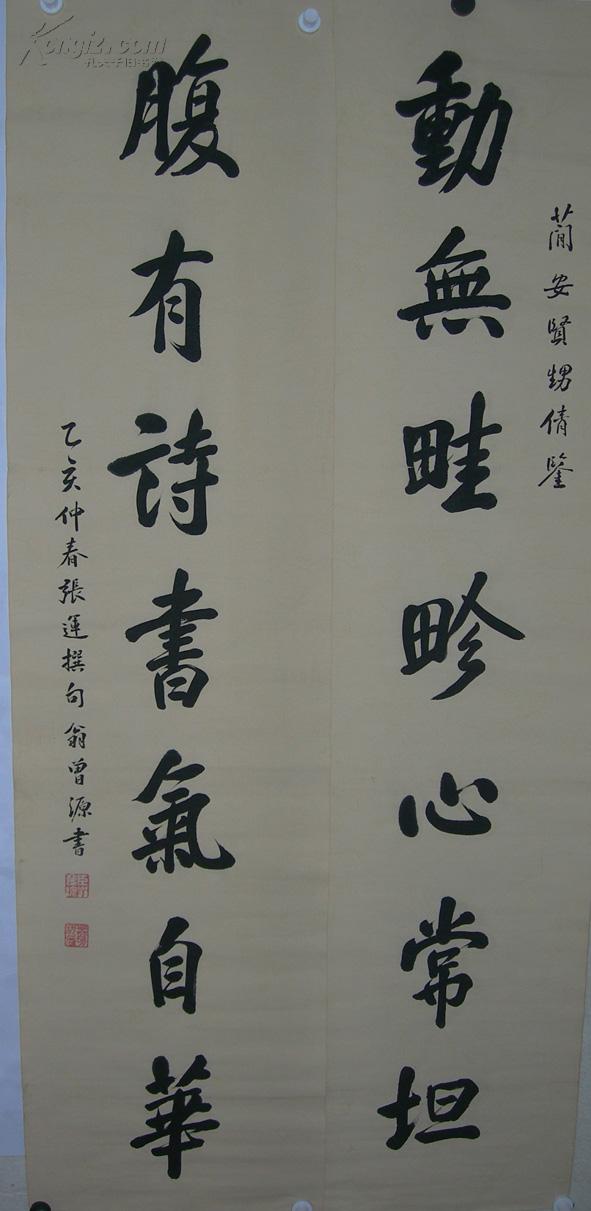 蕑安賢甥倩鑒
動無畦畛心常坦
腹有詩書氣自華
乙亥仲春張運撰句翁曾源書
Kongfz.com
孔夫子旧书网